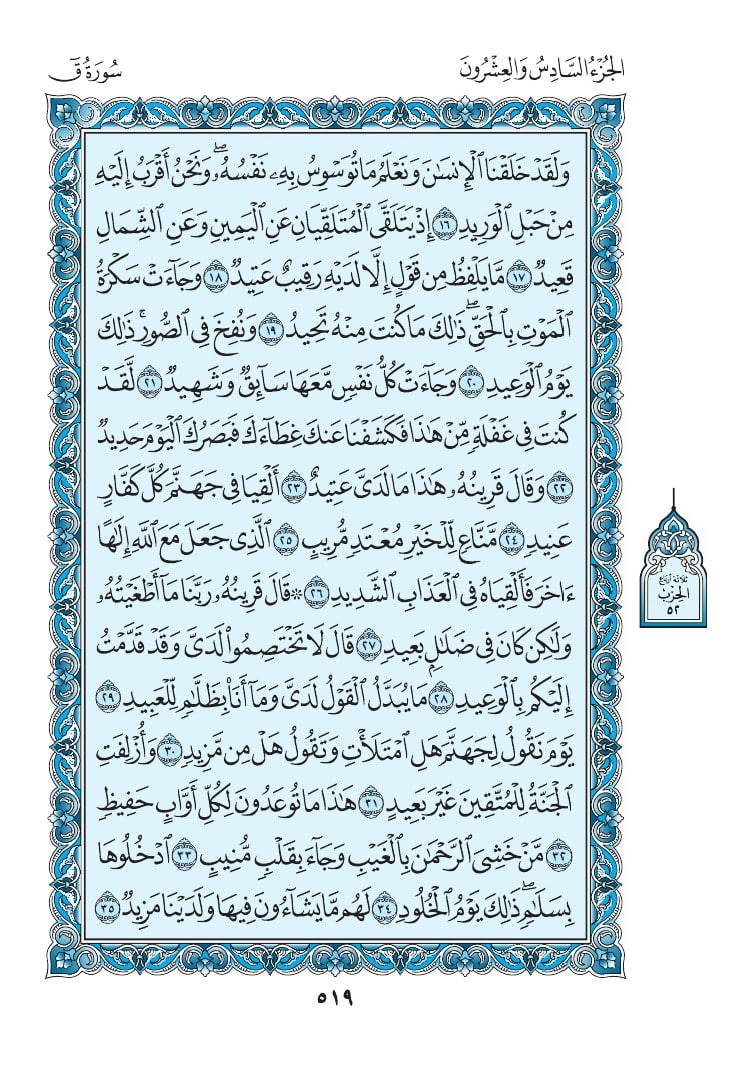 الجُزْءُ السَّادِسُ وَالعِشْرُونَ
سُورَةُ قٓ
وَلَقَدْ خَلَقْنَا ٱلْإِنسَٰنَ وَنَعْلَمُ مَا تُوَسْوِسُ بِهِۦ نَفْسُهُۥۖ وَنَحْنُ أَقْرَبُ إِلَيْهِ
مِنْ حَبْلِ ٱلْوَرِيدِ ١٦ إِذْ يَتَلَقَّى ٱلْمُتَلَقِّيَانِ عَنِ ٱلْيَمِينِ وَعَنِ ٱلشِّمَالِ
قَعِيدٌ ١٧ مَّا يَلْفِظُ مِن قَوْلٍ إِلَّا لَدَيْهِ رَقِيبٌ عَتِيدٌ ١٨ وَجَآءَتْ سَكْرَةُ
ٱلْمَوْتِ بِٱلْحَقِّۖ ذَٰلِكَ مَا كُنتَ مِنْهُ تَحِيدُ ١٩ وَنُفِخَ فِى ٱلصُّورِۚ ذَٰلِكَ
يَوْمُ ٱلْوَعِيدِ ٢٠ وَجَآءَتْ كُلُّ نَفْسٍ مَّعَهَا سَآئِقٌ وَشَهِيدٌ ٢١ لَّقَدْ
كُنتَ فِى غَفْلَةٍ مِّنْ هَٰذَا فَكَشَفْنَا عَنكَ غِطَآءَكَ فَبَصَرُكَ ٱلْيَوْمَ حَدِيدٌ
٢٢ وَقَالَ قَرِينُهُۥ هَٰذَا مَا لَدَىَّ عَتِيدٌ ٢٣ أَلْقِيَا فِى جَهَنَّمَ كُلَّ كَفَّارٍ
عَنِيدٍ ٢٤ مَّنَّاعٍ لِّلْخَيْرِ مُعْتَدٍ مُّرِيبٍ ٢٥ ٱلَّذِى جَعَلَ مَعَ ٱللَّهِ إِلَٰهًا
ءَاخَرَ فَأَلْقِيَاهُ فِى ٱلْعَذَابِ ٱلشَّدِيدِ ٢٦ ۞ قَالَ قَرِينُهُۥ رَبَّنَا مَآ أَطْغَيْتُهُۥ
وَلَٰكِن كَانَ فِى ضَلَٰلٍۭ بَعِيدٍ ٢٧ قَالَ لَا تَخْتَصِمُوا۟ لَدَىَّ وَقَدْ قَدَّمْتُ
إِلَيْكُم بِٱلْوَعِيدِ ٢٨ مَا يُبَدَّلُ ٱلْقَوْلُ لَدَىَّ وَمَآ أَنَا۠ بِظَلَّٰمٍ لِّلْعَبِيدِ ٢٩
يَوْمَ نَقُولُ لِجَهَنَّمَ هَلِ ٱمْتَلَأْتِ وَتَقُولُ هَلْ مِن مَّزِيدٍ ٣٠ وَأُزْلِفَتِ
ٱلْجَنَّةُ لِلْمُتَّقِينَ غَيْرَ بَعِيدٍ ٣١ هَٰذَا مَا تُوعَدُونَ لِكُلِّ أَوَّابٍ حَفِيظٍ
٣٢ مَّنْ خَشِىَ ٱلرَّحْمَٰنَ بِٱلْغَيْبِ وَجَآءَ بِقَلْبٍ مُّنِيبٍ ٣٣ ٱدْخُلُوهَا
بِسَلَٰمٍۖ ذَٰلِكَ يَوْمُ ٱلْخُلُودِ ٣٤ لَهُم مَّا يَشَآءُونَ فِيهَا وَلَدَيْنَا مَزِيدٌ ٣٥
ثلاثة أرباع
الحزب
٥٢
٥١٩